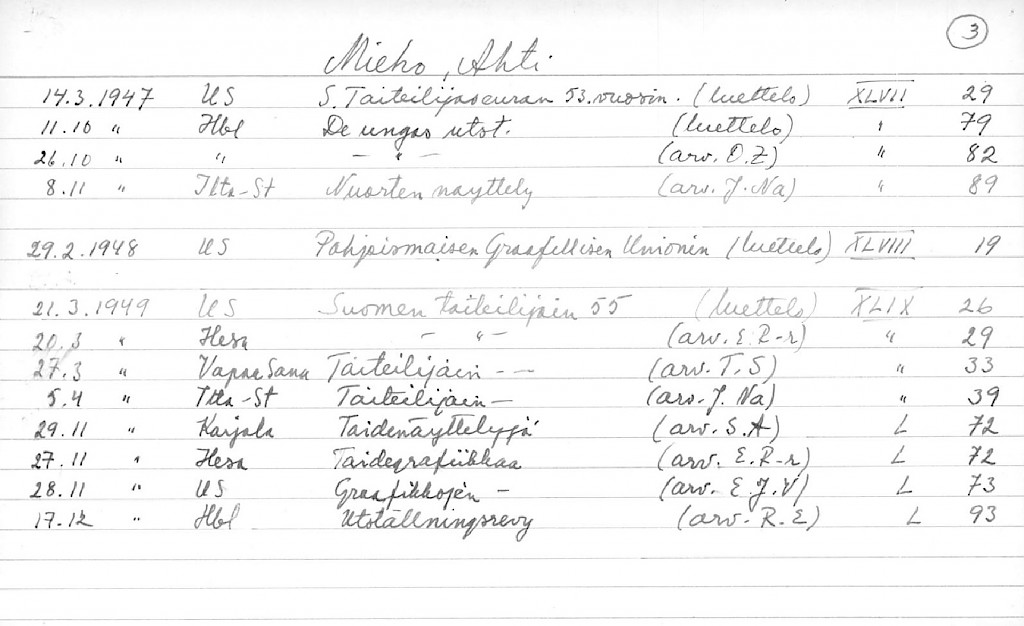 3
Mieho, Ahti
14.3.1947 US S. Taiteilijaseuran 53. vuosin. (luettelo) XLVII 29
11.10 " Hbl De ungas utst. (luettelo) " 79
26.10 " " — " — (arv. O.Z) " 82
8.11 " Ilta-St Nuorten näyttely (arv. J. Na) " 89
29.2.1948 US Pohjoismaisen Graafillisen Unionin (luettelo) XLVIII 19
21.3.1949 US Suomen taiteilijain 55 (luettelo) XLIX 26
20.3 " Hesa — " — (arv. E.R-r) " 29
27.3 " Vapaa Sana Taiteilijain - — (arv. T.S) " 33
5.4 " Ilta-St Taiteilijain — (arv. J. Na) " 39
29.11 " Karjala Taidenäyttelyjä (arv. S.A) L 72
27.11 " Hesa Taidegrafiikkaa (arv. E.R-r) L 72
28.11 " US Graafikkojen — (arv. E.J.V) L 73
17.12 " Hbl Utställningsrevy (arv. R.E) L 93